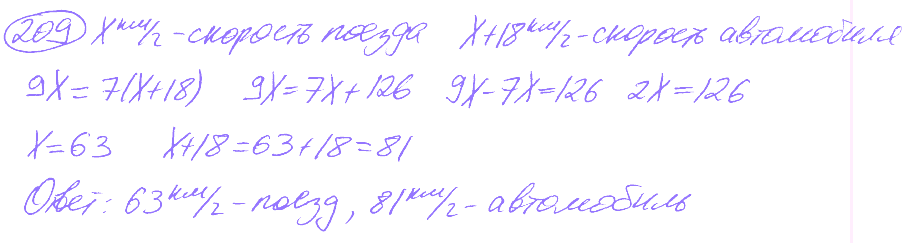 209 x км/г - скорость поезда x+18 км/г - скорость автомобиля
9x = 7(x+18) 9x = 7x + 126 9x - 7x = 126 2x = 126
x = 63 x+18 = 63+18 = 81
Ответ: 63 км/г - поезд, 81 км/г - автомобиль